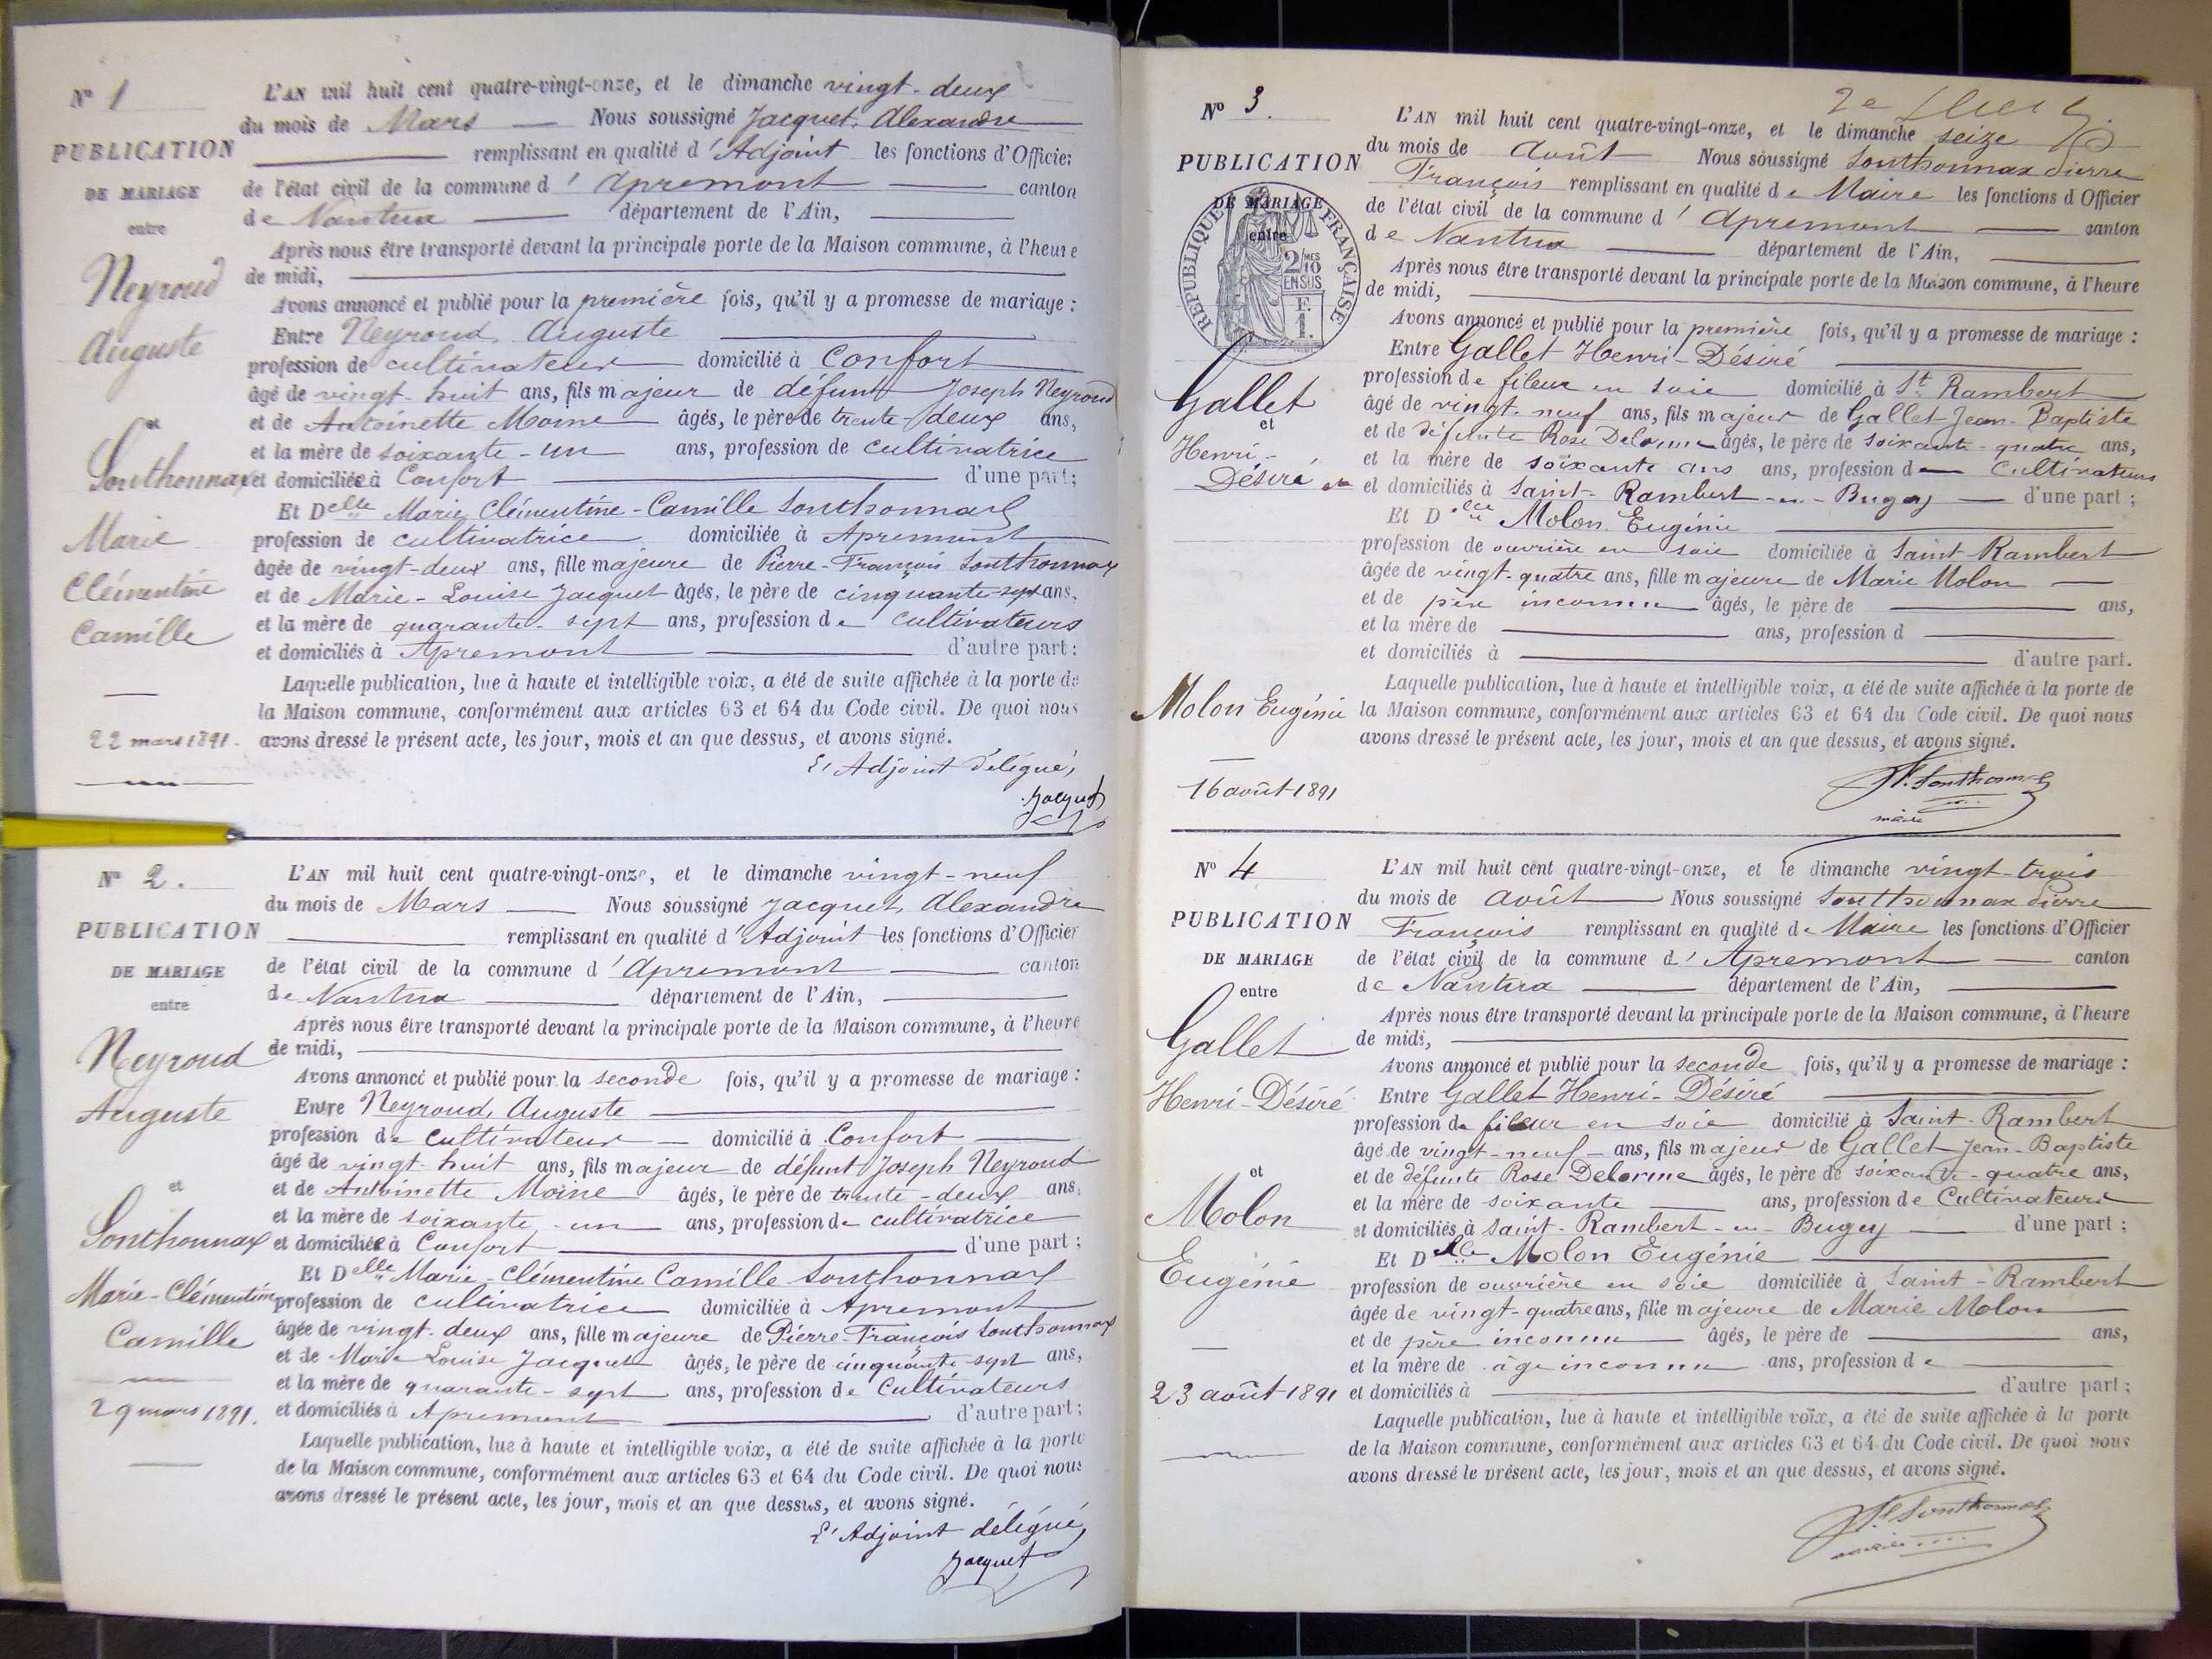 N° 1
PUBLICATION
DE MARIAGE
entre
Neyroud
Auguste
et
Sonthonnax
Marie
Clémentine
Camille
22 mars 1891.
L'AN mil huit cent quatre-vingt-onze, et le dimanche vingt-deux
du mois de Mars Nous soussigné Jacquet, Alexandre
remplissant en qualité d'Adjoint les fonctions d'Officier
de l'état civil de la commune d'Apremont canton
de Nantua département de l'Ain,
Après nous être transporté devant la principale porte de la Maison commune, à l'heure
de midi,
Avons annoncé et publié pour la première fois, qu'il y a promesse de mariage :
Entre Neyroud, Auguste
profession de cultivateur domicilié à Confort
âgé de vingt-huit ans, fils majeur de défunt Joseph Neyroud
et de Antoinette Moine âgés, le père de trente-deux ans,
et la mère de soixante-un ans, profession de cultivatrice
et domiciliée à Confort d'une part;
Et Delle Marie Clémentine-Camille Sonthonnax
profession de cultivatrice domiciliée à Apremont
âgée de vingt-deux ans, fille majeure de Pierre-François Sonthonnax
et de Marie-Louise Jacquet âgés, le père de cinquante-sept ans,
et la mère de quarante-sept ans, profession de cultivateurs
et domiciliés à Apremont d'autre part:
Laquelle publication, lue à haute et intelligible voix, a été de suite affichée à la porte de
la Maison commune, conformément aux articles 63 et 64 du Code civil. De quoi nous
avons dressé le présent acte, les jour, mois et an que dessus, et avons signé.
L'Adjoint délégué,
Jacquet
N° 2.
PUBLICATION
DE MARIAGE
entre
Neyroud
Auguste
et
Sonthonnax
Marie-Clémentine
Camille
29 mars 1891.
L'AN mil huit cent quatre-vingt-onze, et le dimanche vingt-neuf
du mois de Mars Nous soussigné Jacquet, Alexandre
remplissant en qualité d'Adjoint les fonctions d'Officier
de l'état civil de la commune d'Apremont canton
de Nantua département de l'Ain,
Après nous être transporté devant la principale porte de la Maison commune, à l'heure
de midi,
Avons annoncé et publié pour la seconde fois, qu'il y a promesse de mariage :
Entre Neyroud, Auguste
profession de cultivateur domicilié à Confort
âgé de vingt-huit ans, fils majeur de défunt Joseph Neyroud
et de Antoinette Moine âgés, le père de trente-deux ans,
et la mère de soixante-un ans, profession de cultivatrice
et domiciliée à Confort d'une part ;
Et Delle Marie-Clémentine Camille Sonthonnax
profession de cultivatrice domiciliée à Apremont
âgée de vingt-deux ans, fille majeure de Pierre-François Sonthonnax
et de Marie Louise Jacquet âgés, le père de cinquante-sept ans,
et la mère de quarante-sept ans, profession de Cultivateurs
et domiciliés à Apremont d'autre part ;
Laquelle publication, lue à haute et intelligible voix, a été de suite affichée à la porte
de la Maison commune, conformément aux articles 63 et 64 du Code civil. De quoi nous
avons dressé le présent acte, les jour, mois et an que dessus, et avons signé.
L'Adjoint délégué,
Jacquet
2e
N° 3.
PUBLICATION
DE MARIAGE
entre
RÉPUBLIQUE FRANÇAISE
2/10MES
EN SUS
F.
1.
Gallet
et
Henri-
Désiré
Molon Eugénie
16 août 1891
L'AN mil huit cent quatre-vingt-onze, et le dimanche seize
du mois de Août Nous soussigné Sonthonnax Pierre
François remplissant en qualité de Maire les fonctions d'Officier
de l'état civil de la commune d'Apremont canton
de Nantua département de l'Ain,
Après nous être transporté devant la principale porte de la Maison commune, à l'heure
de midi,
Avons annoncé et publié pour la première fois, qu'il y a promesse de mariage :
Entre Gallet Henri-Désiré
profession de fileur en soie domicilié à St Rambert
âgé de vingt-neuf ans, fils majeur de Gallet Jean-Baptiste
et de défunte Rose Delorme âgés, le père de soixante-quatre ans,
et la mère de soixante ans ans, profession d Cultivateurs
et domiciliés à Saint-Rambert-en-Bugey d'une part ;
Et Delle Molon Eugénie
profession de ouvrière en soie domiciliée à Saint-Rambert
âgée de vingt-quatre ans, fille majeure de Marie Molon
et de père inconnu âgés, le père de ans,
et la mère de ans, profession d
et domiciliés à d'autre part.
Laquelle publication, lue à haute et intelligible voix, a été de suite affichée à la porte de
la Maison commune, conformément aux articles 63 et 64 du Code civil. De quoi nous
avons dressé le présent acte, les jour, mois et an que dessus, et avons signé.
Sonthonnax
maire
N° 4
PUBLICATION
DE MARIAGE
entre
Gallet
Henri-Désiré
et
Molon
Eugénie
23 août 1891
L'AN mil huit cent quatre-vingt-onze, et le dimanche vingt-trois
du mois de Août Nous soussigné Sonthonnax Pierre
François remplissant en qualité de Maire les fonctions d'Officier
de l'état civil de la commune d'Apremont canton
de Nantua département de l'Ain,
Après nous être transporté devant la principale porte de la Maison commune, à l'heure
de midi,
Avons annoncé et publié pour la seconde fois, qu'il y a promesse de mariage :
Entre Gallet Henri-Désiré
profession de fileur en soie domicilié à Saint-Rambert
âgé de vingt-neuf ans, fils majeur de Gallet Jean-Baptiste
et de défunte Rose Delorme âgés, le père de soixante-quatre ans,
et la mère de soixante ans, profession de Cultivateurs
et domiciliés à Saint-Rambert-en-Bugey d'une part ;
Et Delle Molon Eugénie
profession de ouvrière en soie domiciliée à Saint-Rambert
âgée de vingt-quatre ans, fille majeure de Marie Molon
et de père inconnu âgés, le père de ans,
et la mère de âge inconnu ans, profession de
et domiciliés à d'autre part ;
Laquelle publication, lue à haute et intelligible voix, a été de suite affichée à la porte
de la Maison commune, conformément aux articles 63 et 64 du Code civil. De quoi nous
avons dressé le présent acte, les jour, mois et an que dessus, et avons signé.
Sonthonnax